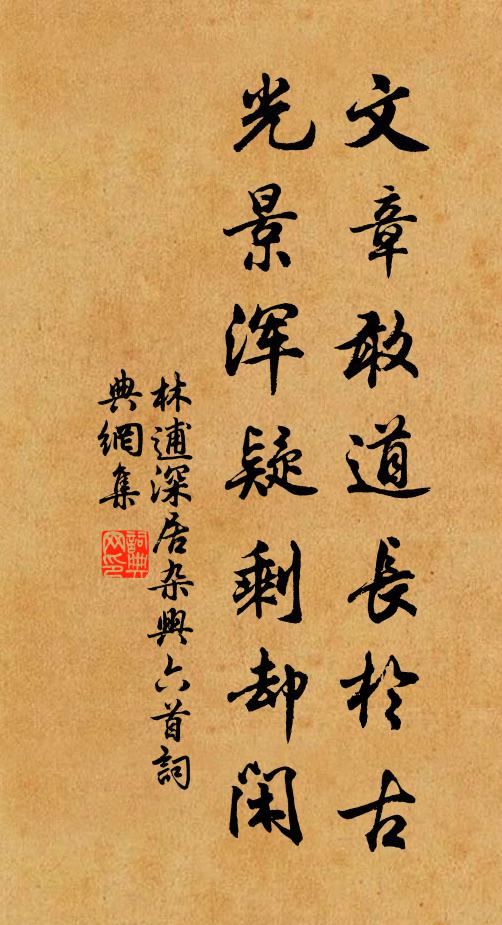 文章敢道長於古
光景浑疑剩却閑
林逋深居杂興六首詞
典網集
詞典
网印